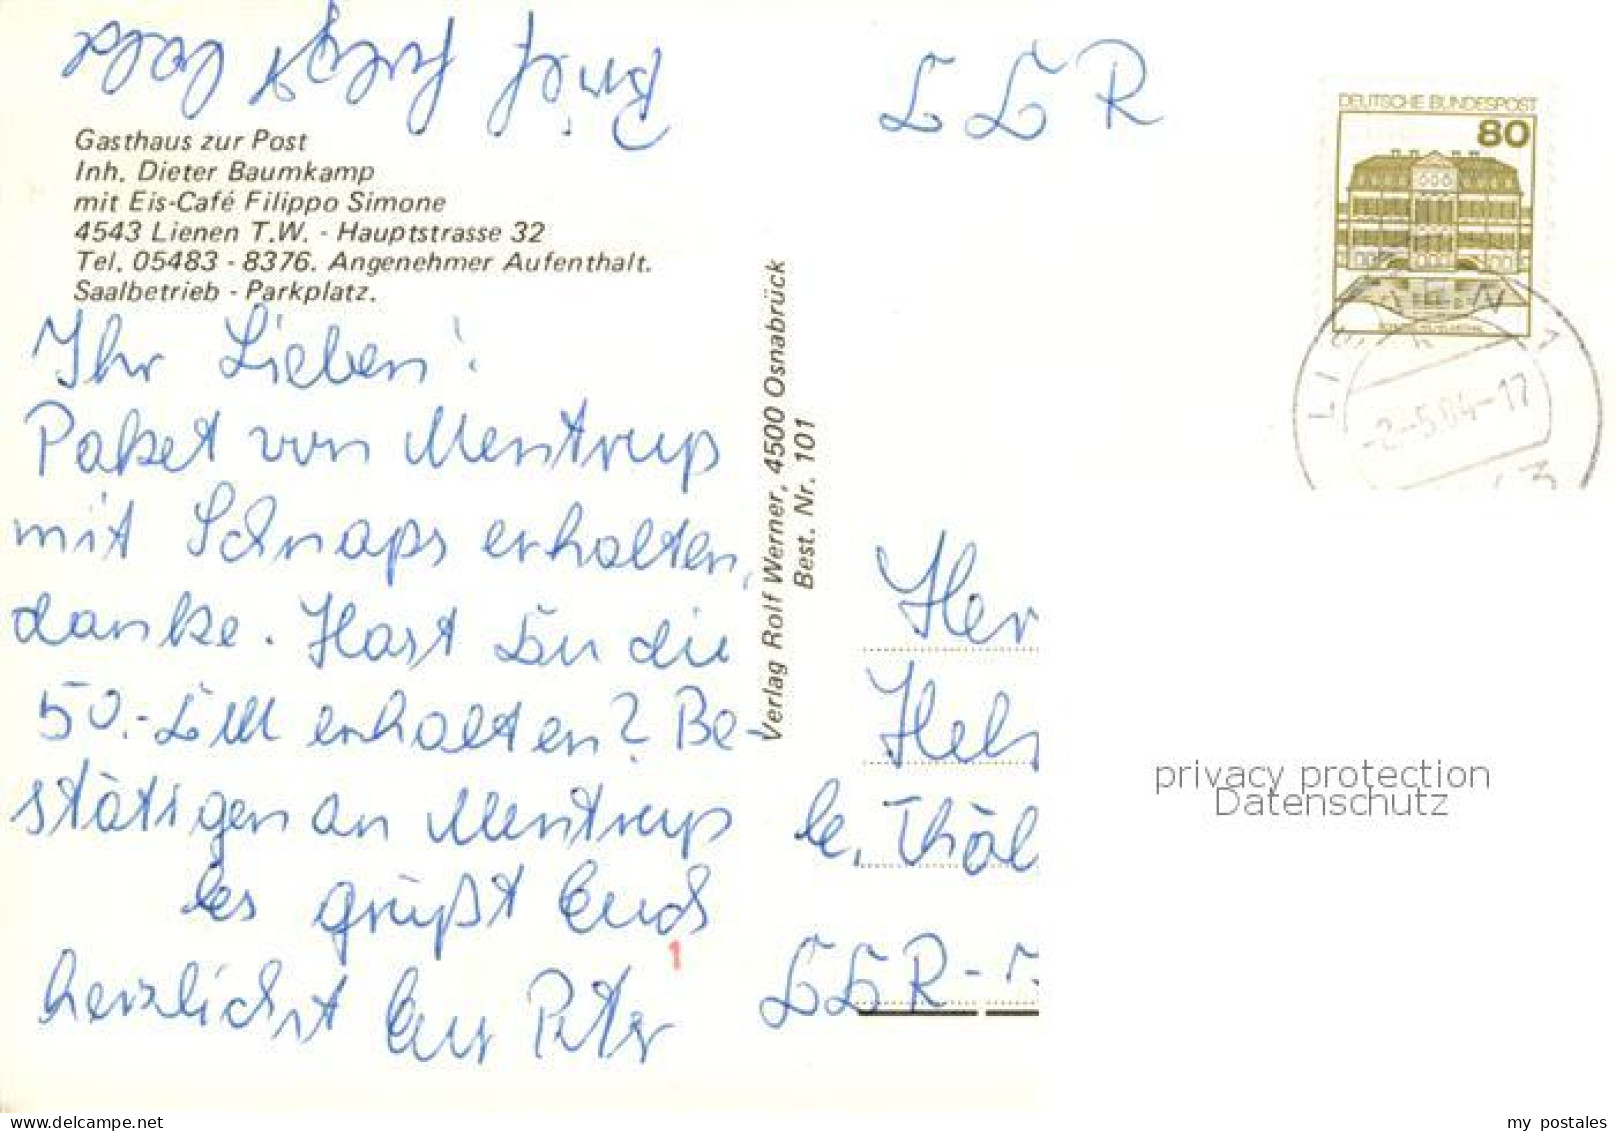 DDR
DEUTSCHE BUNDESPOST
80
Gasthaus zur Post
Inh. Dieter Baumkamp
mit Eis-Café Filippo Simone
4543 Lienen T.W. - Hauptstrasse 32
Tel. 05483 - 8376. Angenehmer Aufenthalt.
Saalbetrieb - Parkplatz.
Ihr Lieben!
Paket von Mentrup
mit Schnaps erhalten,
danke. Hast Du die
50.- DM erhalten? Be-
stätigen an Mentrup
Es grüßt Euch
herzlichst Euer Peter
1
Verlag Rolf Werner, 4500 Osnabrück
Best. Nr. 101
LIENEN 1
-2.-5.84-17
Her
DDR -
privacy protection
Datenschutz
my postales
www.delcampe.net